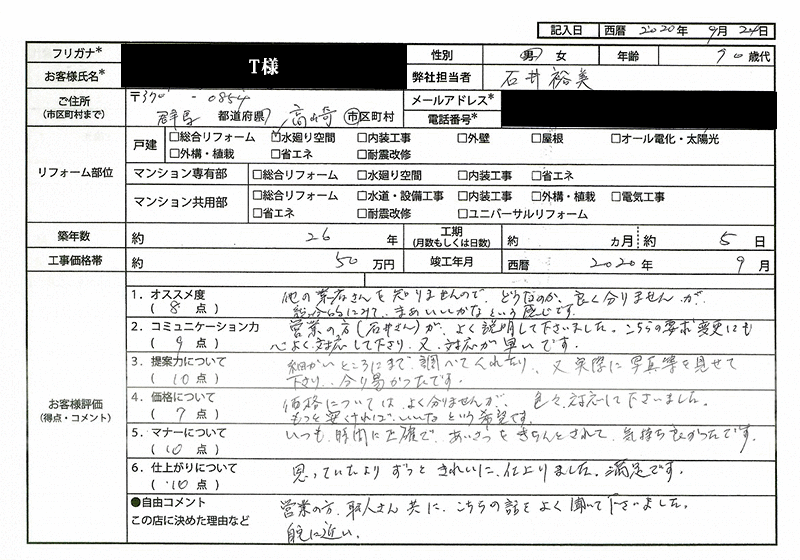 記入日 西暦 2020年 9月 24日
フリガナ* T様 性別 男 女 年齢 70歳代
お客様氏名* 弊社担当者 石井裕美
ご住所 (市区町村まで) 〒370-0854 メールアドレス*
群馬 都道府県 高崎 市区町村 電話番号*
リフォーム部位
戸建 □総合リフォーム ☑水廻り空間 □内装工事 □外壁 □屋根 □オール電化・太陽光
□外構・植栽 □省エネ □耐震改修
マンション専有部 □総合リフォーム □水廻り空間 □内装工事 □省エネ
マンション共用部 □総合リフォーム □水道・設備工事 □内装工事 □外構・植栽 □電気工事
□省エネ □耐震改修 □ユニバーサルリフォーム
築年数 約 26 年 工期 (月数もしくは日数) 約 ヵ月 約 5 日
工事価格帯 約 50 万円 竣工年月 西暦 2020年 9月
お客様評価 (得点・コメント)
1．オススメ度 他の業店さんを知りませんので、どうなのか、良く分りませんが、
(8 点) 総合的にみて、まあいいかなという感じです。
2．コミュニケーション力 営業の方(石井さん)が、よく説明して下さいました。こちらの要求変更にも
(9 点) 心よく対応して下さり、又、対応が早いです。
3．提案力について 細かいところにまで、調べてくれたり、又実際に写真等を見せて
(10 点) 下さり、分り易かったです。
4．価格について 価格については、よく分りませんが、色々対応して下さいました。
(7 点) もっと安くければ、いいなという希望です。
5．マナーについて いつも、時間に正確で、あいさつをきちんとされて、気持ち良かったです。
(10 点)
6．仕上がりについて 思っていたよりずっときれいに、仕上りました。満足です。
(10 点)
●自由コメント 営業の方、職人さん共に、こちらの話をよく聞いて下さいました。
この店に決めた理由など 自宅に近い。